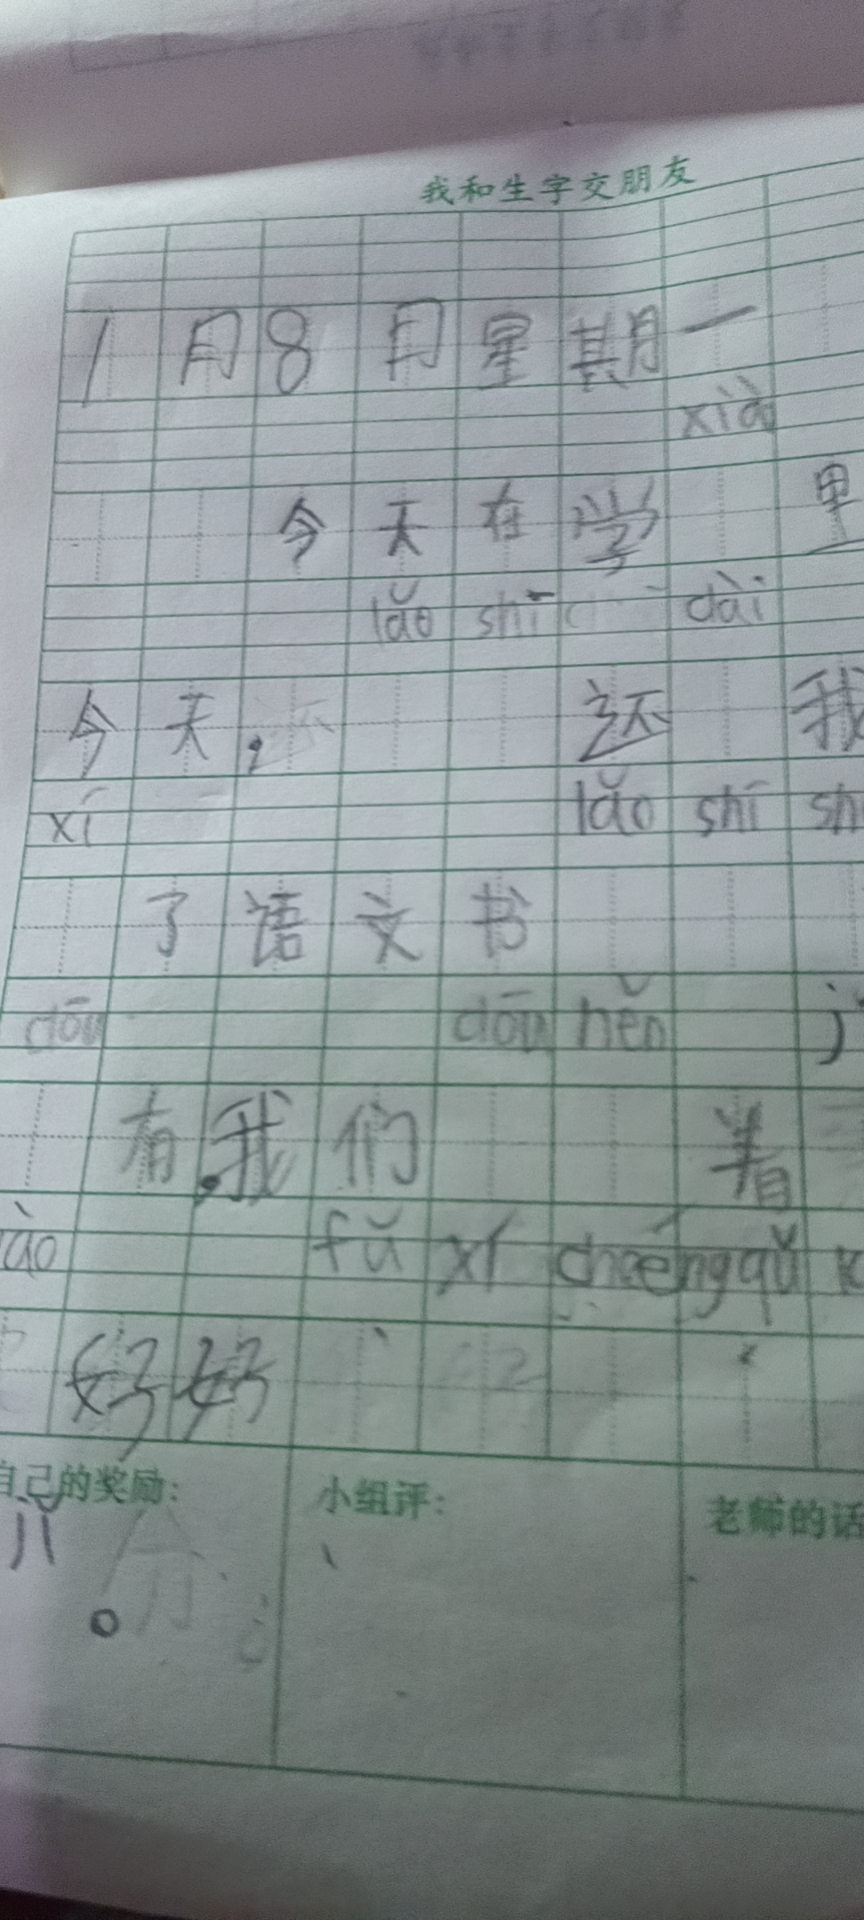 我和生字交朋友
1月8日星期一
xiào
今天在学 里
lǎo shī dài
今天, 还 我
xí lǎo shī
了语文书
dōu dōu hěn
有,我们 着
fǔ xí
好好
自己的奖励:
小组评:
老师的话